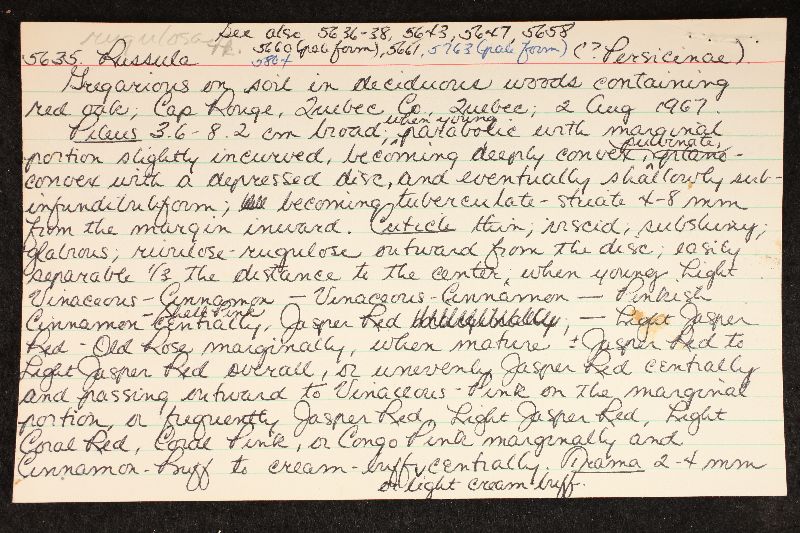 See also 5636-38, 5643, 5647, 5658
rugulosa
5660 (pale form), 5661, 5763 (pale form)
5804
5635. Russula (?Persicinae).
Gregarious on soil in deciduous woods containing
red oak; Cap Rouge, Quebec Co., Quebec; 2 Aug 1967.
Pileus 3.6-8.2 cm broad; when young parabolic with marginal
portion slightly incurved, becoming deeply convex, pulvinate, plano-
convex with a depressed disc, and eventually shallowly sub-
infundibuliform; becoming tuberculate-striate 4-8 mm
from the margin inward. Cuticle thin; viscid; subshiny;
glabrous; rivulose-rugulose outward from the disc; easily
separable 1/3 the distance to the center; when young Light
Vinaceous-Cinnamon — Vinaceous-Cinnamon — Pinkish
Cinnamon - Shell Pink centrally, Jasper Red, — Light Jasper
Red - Old Rose marginally, when mature ± Jasper Red to
Light Jasper Red overall, or unevenly Jasper Red centrally
and passing outward to Vinaceous-Pink on the marginal
portion, or frequently Jasper Red, Light Jasper Red, Light
Coral Red, Coral Pink, or Congo Pink marginally and
Cinnamon-Buff to cream-buffy centrally. Trama 2-4 mm
or light cream buff.